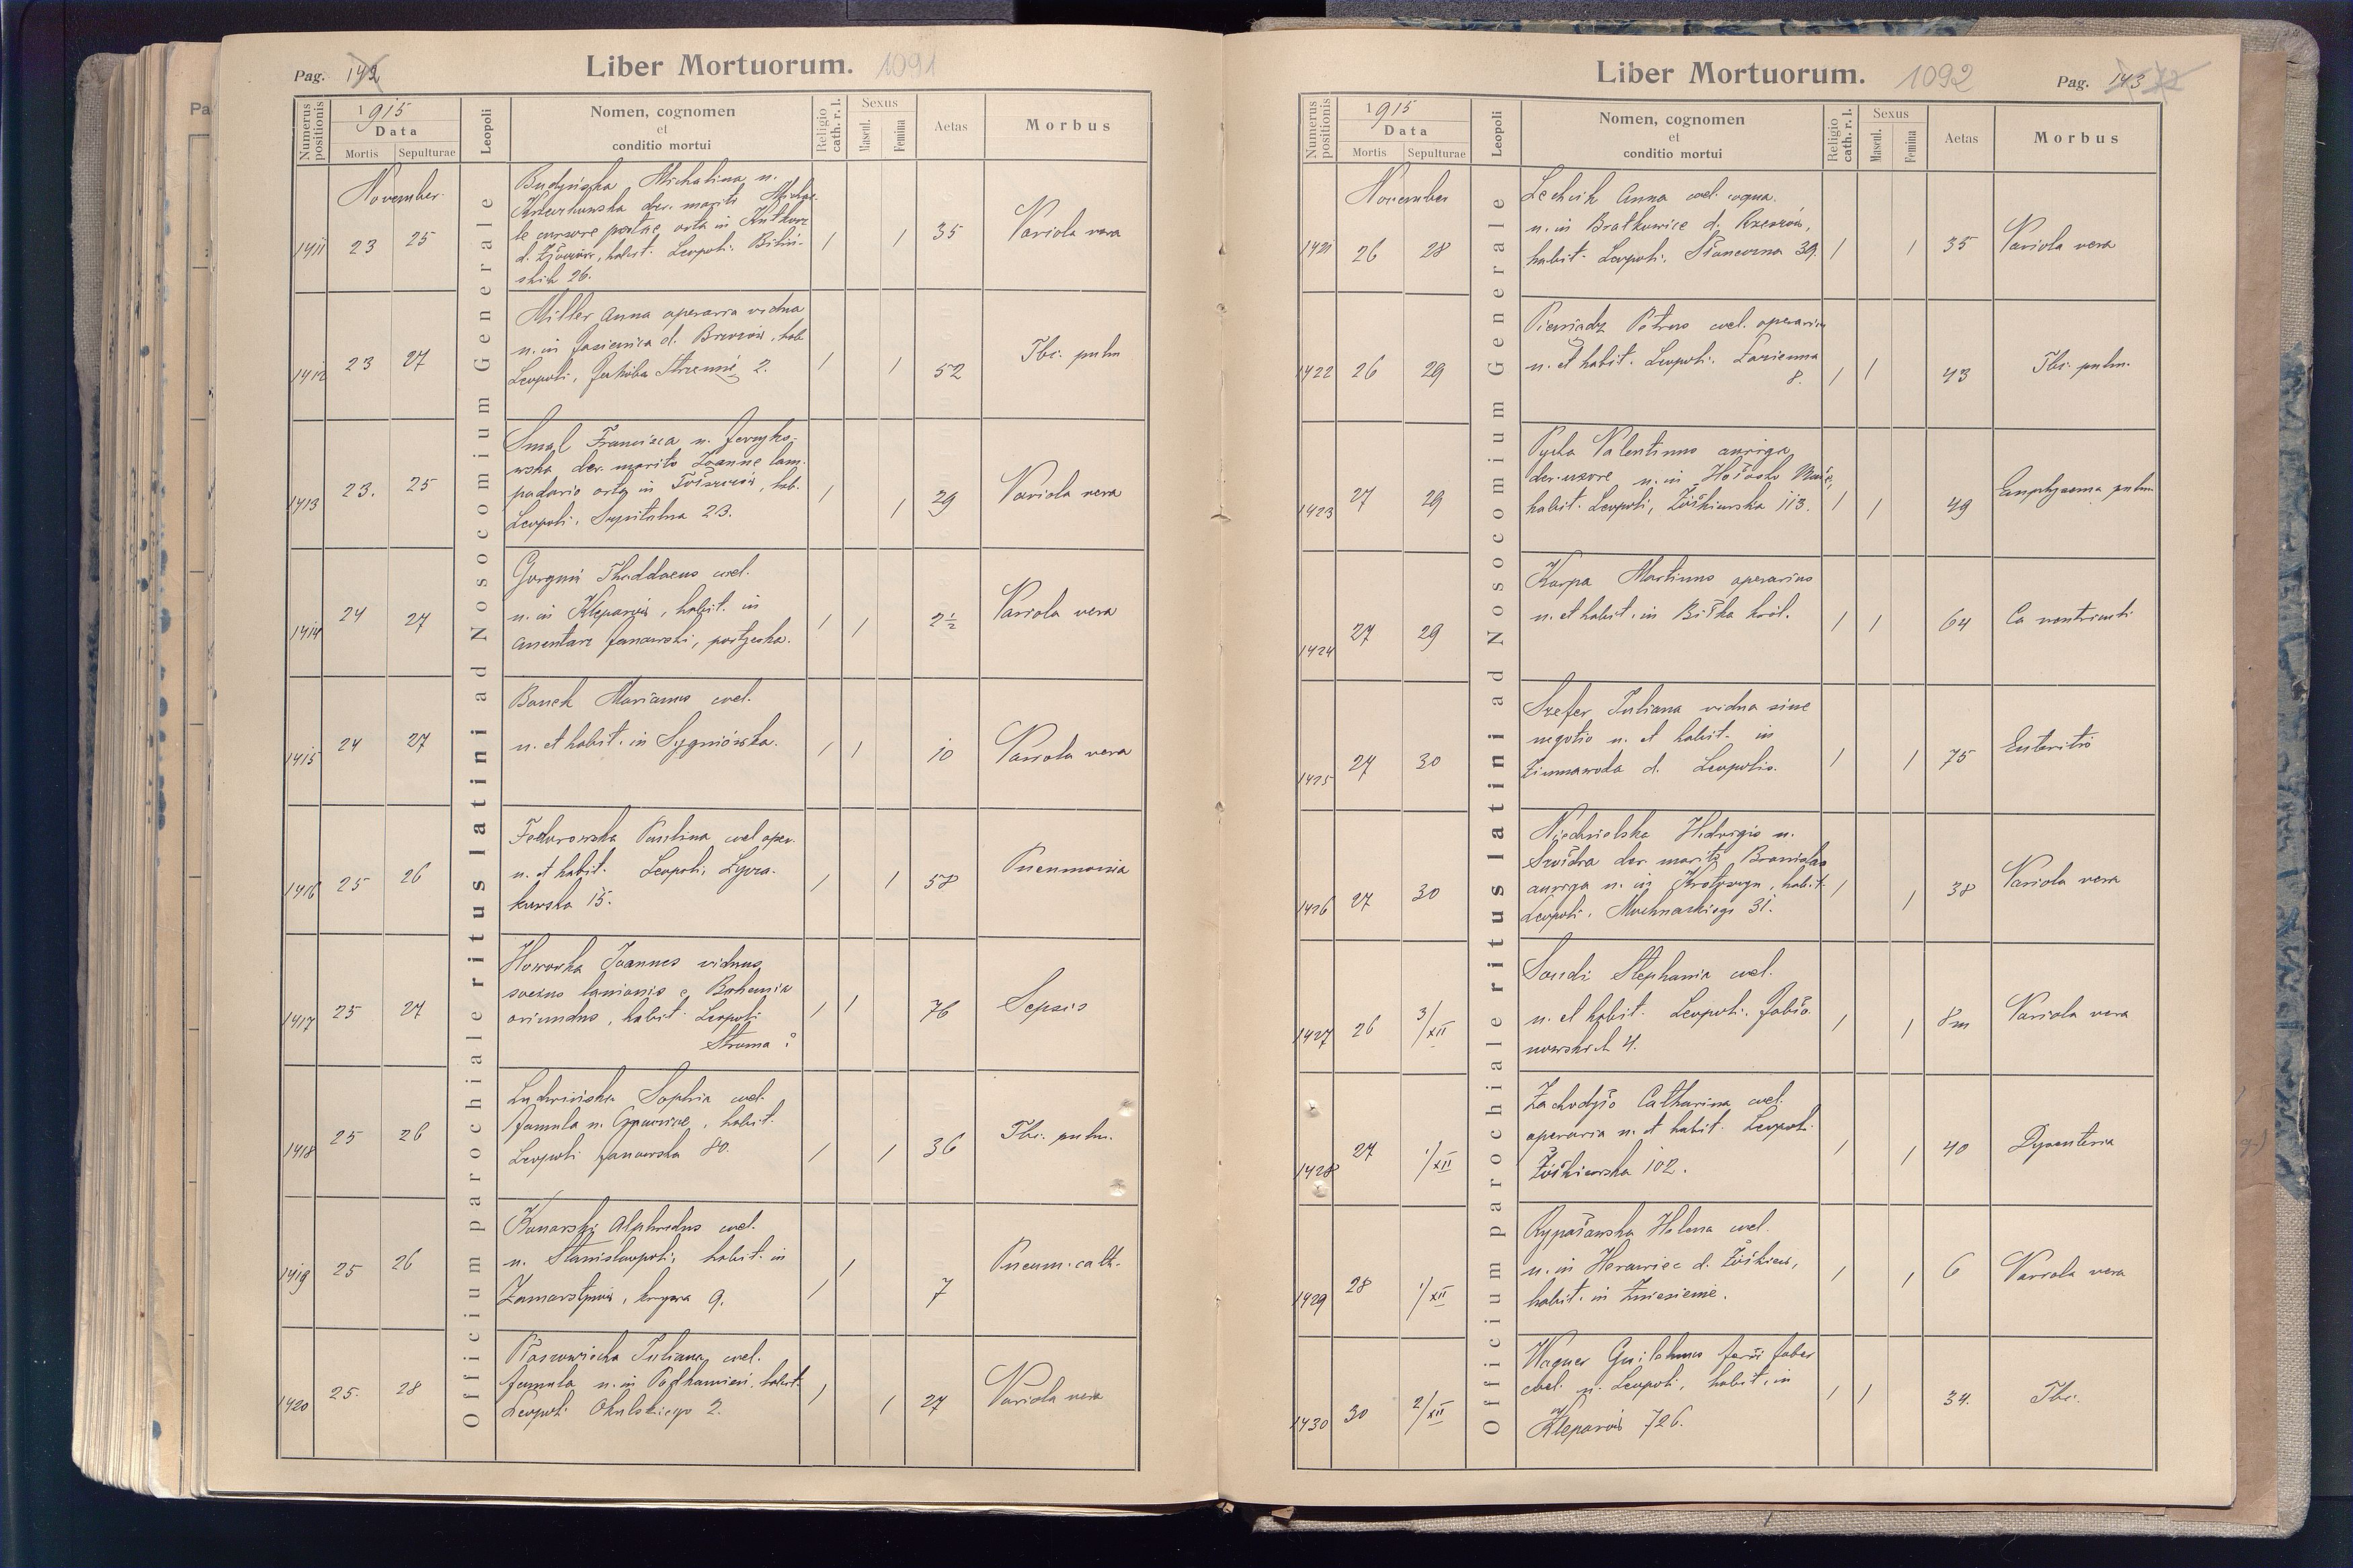 Liber Mortuorum. 1091
Pag. 142
Numerus positionis
1915
Data
Mortis Sepulturae
Leopoli
Nomen, cognomen
et
conditio mortui
Religio cath. r. l.
Sexus
Mascul. Femina
Aetas
Morbus
Officium parochiale ritus latini ad Nosocomium Generale
November
Budyńska Michalina n.
der. marito
orta in
habit. Leopoli,
26.
1411 23 25 / / 35 Variola vera
Miller Anna operaria vidua
n. in Jasienica d. Brzozów, hab.
Leopoli, Jakóba Strzemię 2.
1412 23 27 / / 52 Tbc. pulm
Smal Francisca n.
der. marito Joanne lam-
padario orta in hab.
Leopoli, Szpitalna 23.
1413 23. 25 / / 29 Variola vera
Thaddaeus cael.
n. in Kleparów, habit. in
Janowski,
1414 24 27 / / 2½ Variola vera
Banek Marianus cael.
n. et habit. in Sygniówka.
1415 24 27 / / 10 Variola vera
Fedorowska Paulina cael. oper.
n. et habit. Leopoli, Łycza-
kowska 15.
1416 25 26 / / 58 Pneumonia
Howorka Joannes viduus
e Bohemia
oriundus, habit. Leopoli
Stroma ?
1417 25 27 / / 76 Sepsis
Sophia cael.
famula n. habit.
Leopoli Janowska 80.
1418 25 26 / / 36 Tbc. pulm.
Konarski Alphredus cael.
n. Stanislaopoli, habit. in
Zamarstynów, 9.
1419 25 26 / / 7 Pneum. cath.
Juliana cael.
famula n. in Podkamień, habit.
Leopoli Okulskiego 2.
1420 25. 28 / / 27 Variola vera
Liber Mortuorum. 1092
Pag. 143
Numerus positionis
1915
Data
Mortis Sepulturae
Leopoli
Nomen, cognomen
et
conditio mortui
Religio cath. r. l.
Sexus
Mascul. Femina
Aetas
Morbus
Officium parochiale ritus latini ad Nosocomium Generale
November
Anna cael. coqua
n. in Bratkowice d. Rzeszów,
habit. Leopoli, Słoneczna 39.
1421 26 28 / / 35 Variola vera
Pieniądz Petrus cael. operarius
n. et habit. Leopoli, Łazienna
8.
1422 26 29 / / 43 Tbc. pulm.
Valentinus auriga
der. uxore n. in
habit. Leopoli, Żółkiewska 113.
1423 27 29 / / 49 Emphysema pulm
Karpa Martinus operarius
n. et habit. in Biłka król.
1424 27 29 / / 64 Ca ventriculi
Szefer Juliana vidua sine
negotio n. et habit. in
Zimnawoda d. Leopolis.
1425 27 30 / / 75 Enteritis
Niedzielska Hedvigis n.
der. marito Bronislao
auriga n. in habit.
Leopoli, Mochnackiego 31.
1426 27 30 / / 38 Variola vera
Stephania cael.
n. et habit. Leopoli, Jabło-
nowskich 4.
1427 26 3/XII / / 8m Variola vera
Catharina cael.
operaria n. et habit. Leopoli
Żółkiewska 102.
1428 27 1/XII / / 40 Dysenteria
Helena cael.
n. in d. Żółkiew,
habit. in Zniesienie.
1429 28 1/XII / / 6 Variola vera
Wagner Guilelmus ferri faber
cael. n. Leopoli, habit. in
Kleparów 726.
1430 30 2/XII / / 34. Tbc.